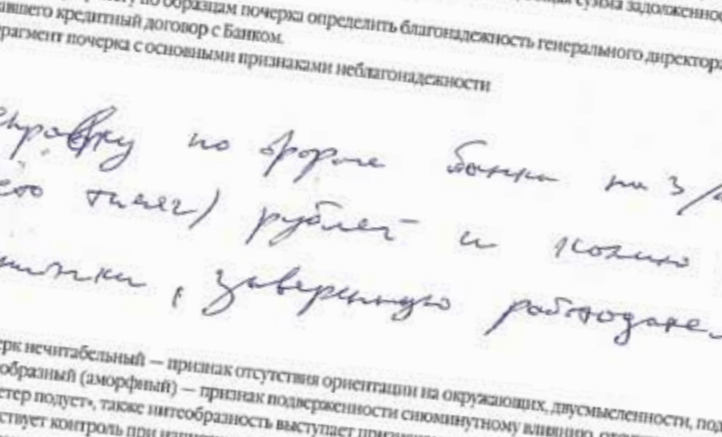 сумма задолженнос
по образцам почерка определить благонадежность генерального директора
авшего кредитный договор с Банком.
рагмент почерка с основными признаками неблагонадежности
справку по форме банка на 3/
сто тысяч) рублей и копию
книжки, заверенную работодате
ерк нечитабельный — признак отсутствия ориентации на окружающих, двусмысленности, под
образный (аморфный) — признак подверженности сиюминутному влиянию,
етер подует», также нитеобразность выступает
ствует контроль при